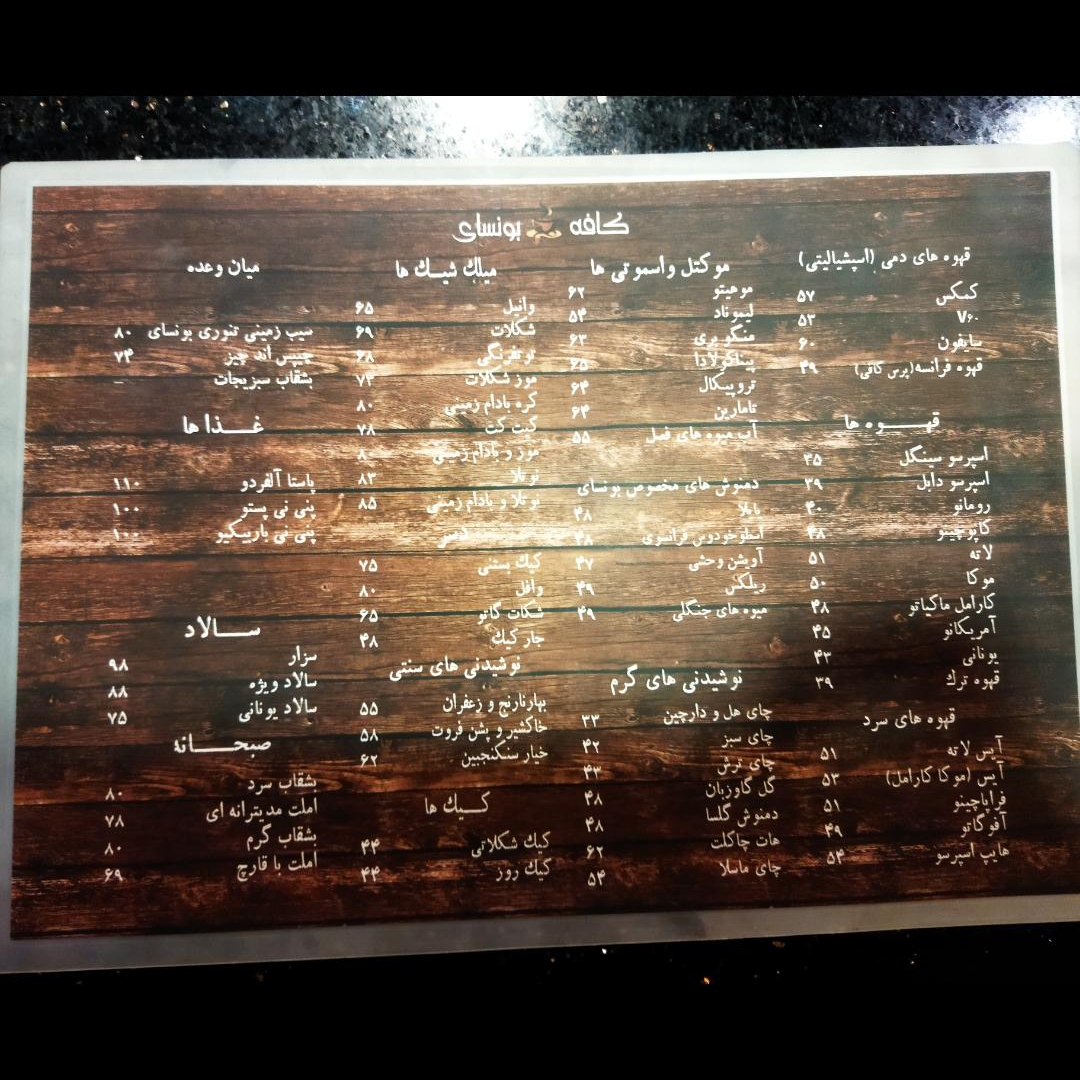 کافه بونسای
قهوه های دمی (اسپشیالیتی)
کمکس ۵۷
V۶۰ ۵۳
سایفون ۶۰
قهوه فرانسه(پرس کافی) ۴۹
قهوه ها
اسپرسو سینگل ۳۵
اسپرسو دابل ۳۹
رومانو ۴۰
کاپوچینو ۴۸
لاته ۵۱
موکا ۵۰
کارامل ماکیاتو ۴۸
آمریکانو ۴۵
یونانی ۴۳
قهوه ترک ۳۹
قهوه های سرد
آیس لاته ۵۱
آیس (موکا کارامل) ۵۳
فراپاچینو ۵۱
آفوگاتو ۴۹
هایپ اسپرسو ۵۴
موکتل و اسموتی ها
موهیتو ۶۲
لیموناد ۵۴
منگو بری ۶۳
پیناکولادا ۶۵
تروپیکال ۶۴
تامارین ۶۴
آب میوه های فصل ۵۵
دمنوش های مخصوص بونسای
۴۸
اسطوخودوس فرانسوی ۴۸
آویشن وحشی ۴۷
ریلکس ۴۹
میوه های جنگلی ۴۹
نوشیدنی های گرم
چای هل و دارچین ۳۳
چای سبز ۴۲
چای ترش ۴۳
گل گاوزبان ۴۸
دمنوش گلسا ۴۸
هات چاکلت ۶۲
چای ماسالا ۵۴
میلک شیک ها
وانیل ۶۵
شکلات ۶۹
توتفرنگی ۶۸
موز شکلات ۷۳
کره بادام زمینی ۸۰
کیت کت ۷۸
موز و بادام زمینی ۸۰
نوتلا ۸۳
نوتلا و بادام زمینی ۸۵
دسر
کیک بستنی ۷۵
وافل ۸۰
شکلات گاتو ۶۵
جار کیک ۴۸
نوشیدنی های سنتی
بهارنارنج و زعفران ۵۵
خاکشیر و پشن فروت ۵۸
خیار سکنجبین ۶۲
کیک ها
کیک شکلاتی ۴۴
کیک روز ۴۴
میان وعده
سیب زمینی تنوری بونسای ۸۰
چیپس اَند چیز ۷۴
بشقاب سبزیجات _
غذا ها
پاستا آلفردو ۱۱۰
پنی نی پستو ۱۰۰
پنی نی باربیکیو ۱۰۰
سالاد
سزار ۹۸
سالاد ویژه ۸۸
سالاد یونانی ۷۵
صبحانه
بشقاب سرد ۸۰
املت مدیترانه ای ۷۸
بشقاب گرم ۸۰
املت با قارچ ۶۹